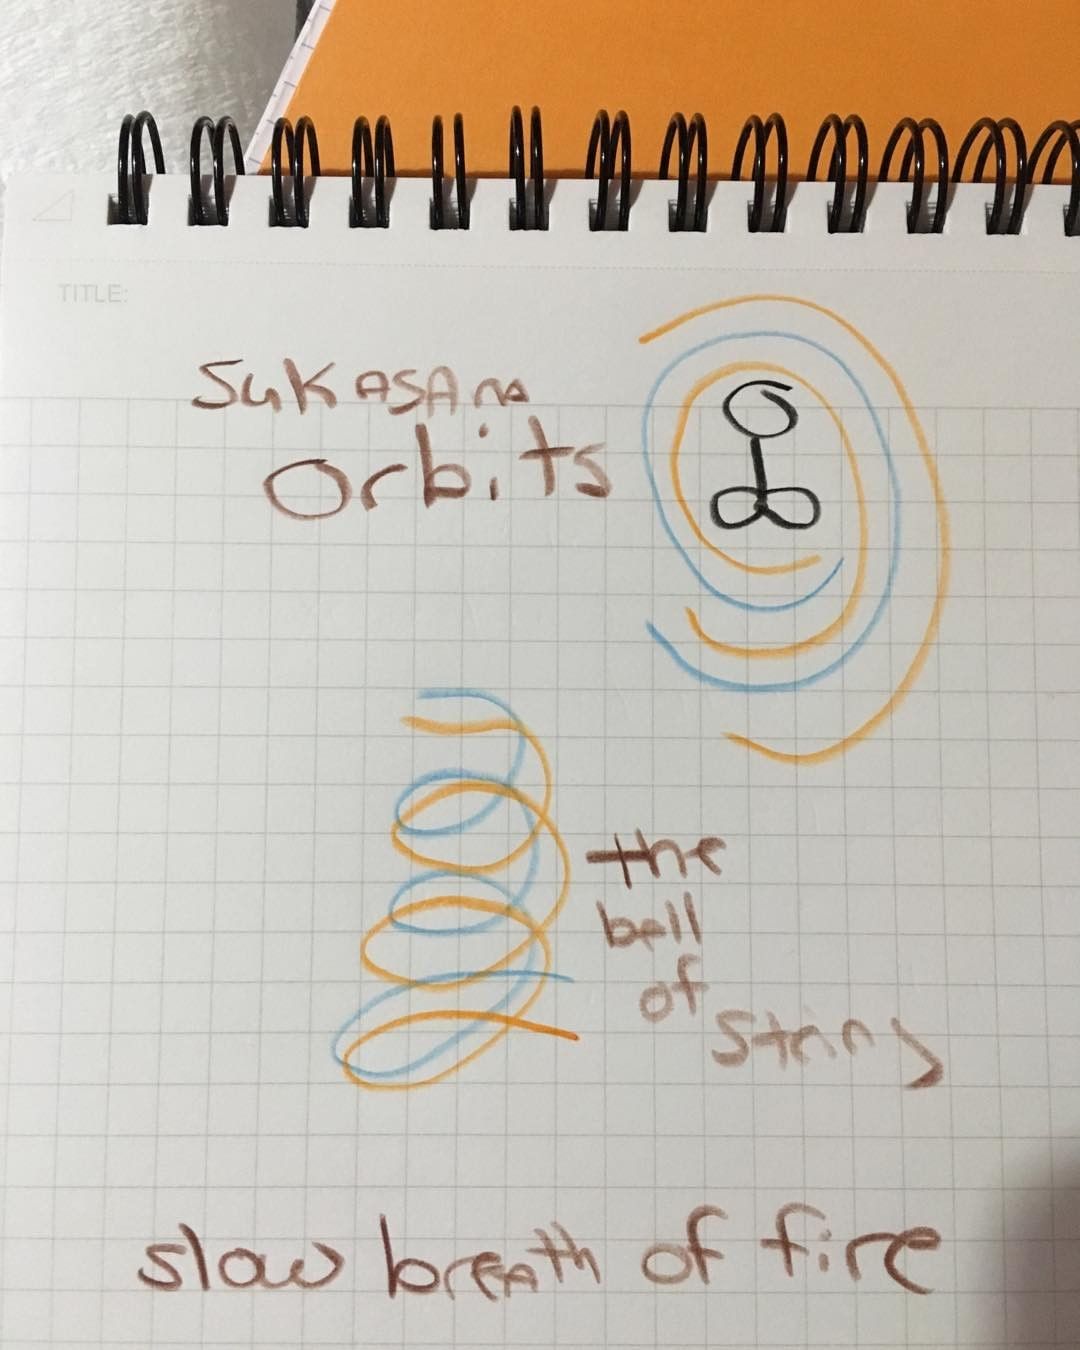 TITLE:
SuKASANa
Orbits
the
ball
of
String
slow breath of fire